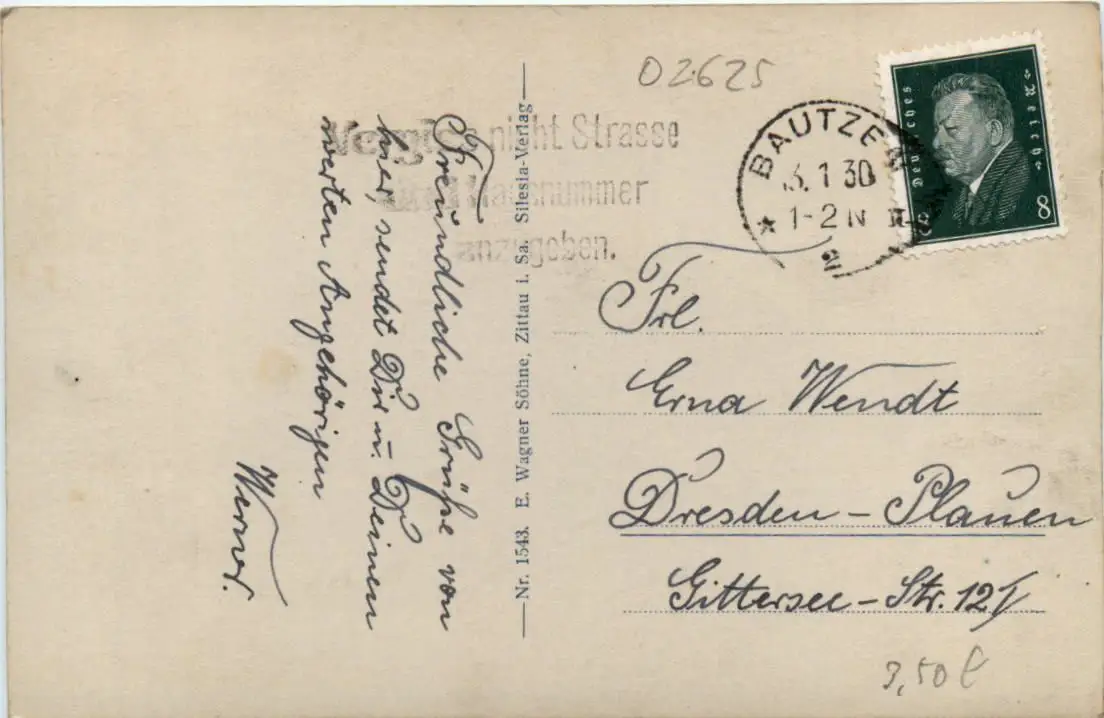 02625
Deutsches Reich
8 8
BAUTZEN
13. 1 30
1-2 N
2
Vergiss nicht Strasse
und Hausnummer
anzugeben.
Freundliche Grüße von
hier, sendet Dir u. Deinen
werten Angehörigen
Werner.
Nr. 1543. E. Wagner Söhne, Zittau i. Sa. Silesia-Verlag
Frl.
Erna Wendt
Dresden - Plauen
Gittersee-Str. 12